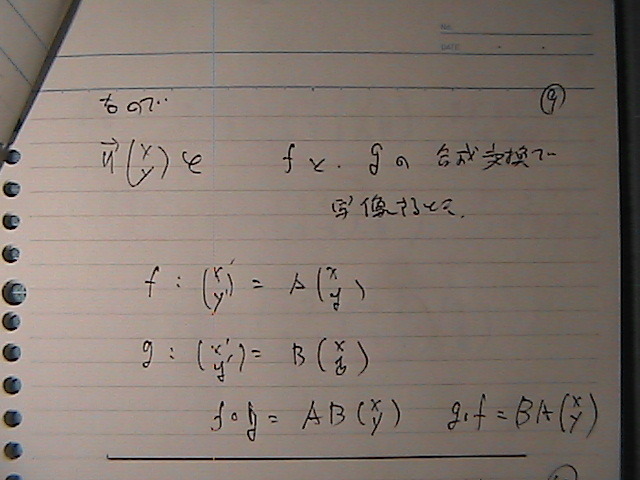 No.
DATE
もので ⑨
u⃗(x y)を fと、gの合成変換で
写像すると、
f : (x' y') = A(x y)
g : (x' y') = B(x y)
f∘g = AB(x y) g∘f = BA(x y)